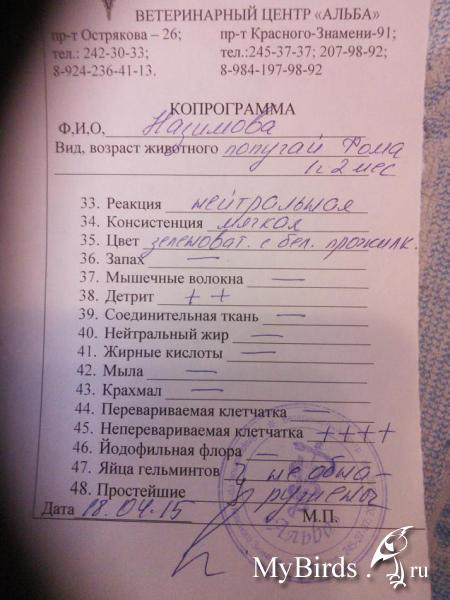 ВЕТЕРИНАРНЫЙ ЦЕНТР «АЛЬБА»
пр-т Острякова – 26; пр-т Красного-Знамени-91;
тел.: 242-30-33; тел.:245-37-37; 207-98-92;
8-924-236-41-13. 8-984-197-98-92
КОПРОГРАММА
Ф,И,О, Назимова
Вид, возраст животного попугай Фома
1г 2 мес
33. Реакция нейтральная
34. Консистенция мягкая
35. Цвет зеленоват. с бел. прожилк.
36. Запах —
37. Мышечные волокна —
38. Детрит + +
39. Соединительная ткань —
40. Нейтральный жир —
41. Жирные кислоты —
42. Мыла —
43. Крахмал —
44. Перевариваемая клетчатка —
45. Неперевариваемая клетчатка ++++
46. Йодофильная флора —
47. Яйца гельминтов } не обна-
48. Простейшие ружены
Дата 18.04.15 М.П.
Альба
MyBirds.ru